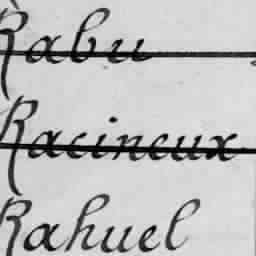 Rabu
Racineux
Rahuel